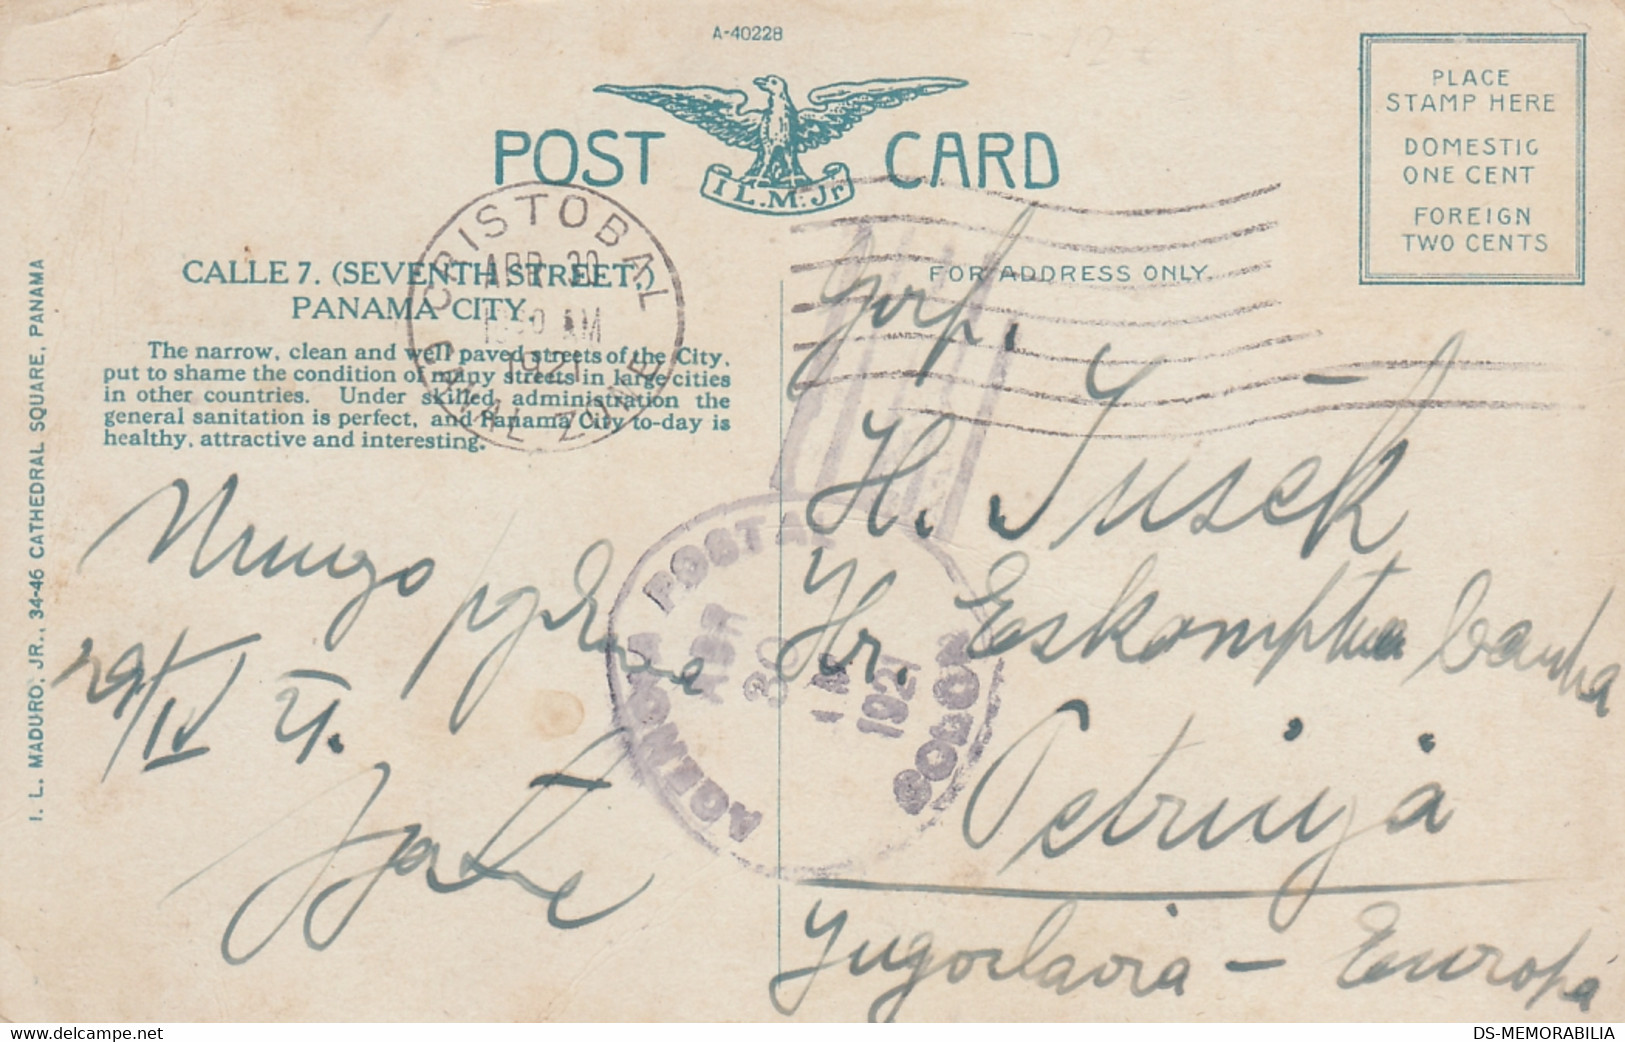 A-40228
POST CARD
I.L.M.Jr
PLACE
STAMP HERE
DOMESTIC
ONE CENT
FOREIGN
TWO CENTS
CRISTOBAL
APR 30
AM
1921
CANAL ZONE
CALLE 7. (SEVENTH STREET.)
PANAMA CITY.
The narrow, clean and well paved streets of the City,
put to shame the condition of many streets in large cities
in other countries. Under skilled administration the
general sanitation is perfect, and Panama City to-day is
healthy, attractive and interesting.
I. L. MADURO, JR., 34-46 CATHEDRAL SQUARE, PANAMA
Mnogo
29/IV 21.
AGENCIA POSTAL
APR
30
1921
COLON
FOR ADDRESS ONLY.
Gosp.
H. Jusek
Hr. Eskomptna banka
Petrinja
Jugoslavia - Europa
DS-MEMORABILIA